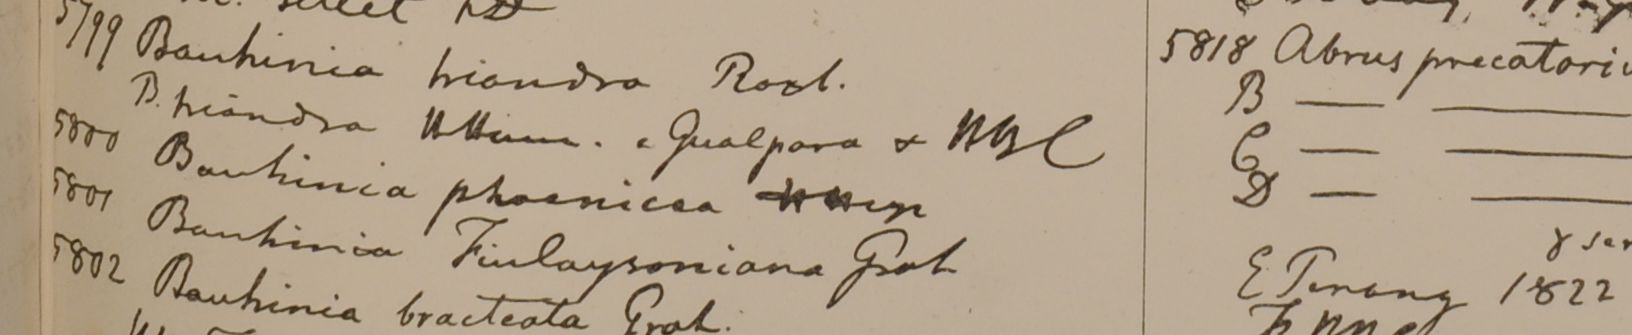 5799 Bauhinia triandra Roxl.
B. triandra . e Gualpara & HBC
5800 Bauhinia phoenicea
5801 Bauhinia Finlaysoniana Grah
5802 Bauhinia bracteata Grah.
5818 Abrus precatori
B — —
C — —
D — —
E Penang 1822